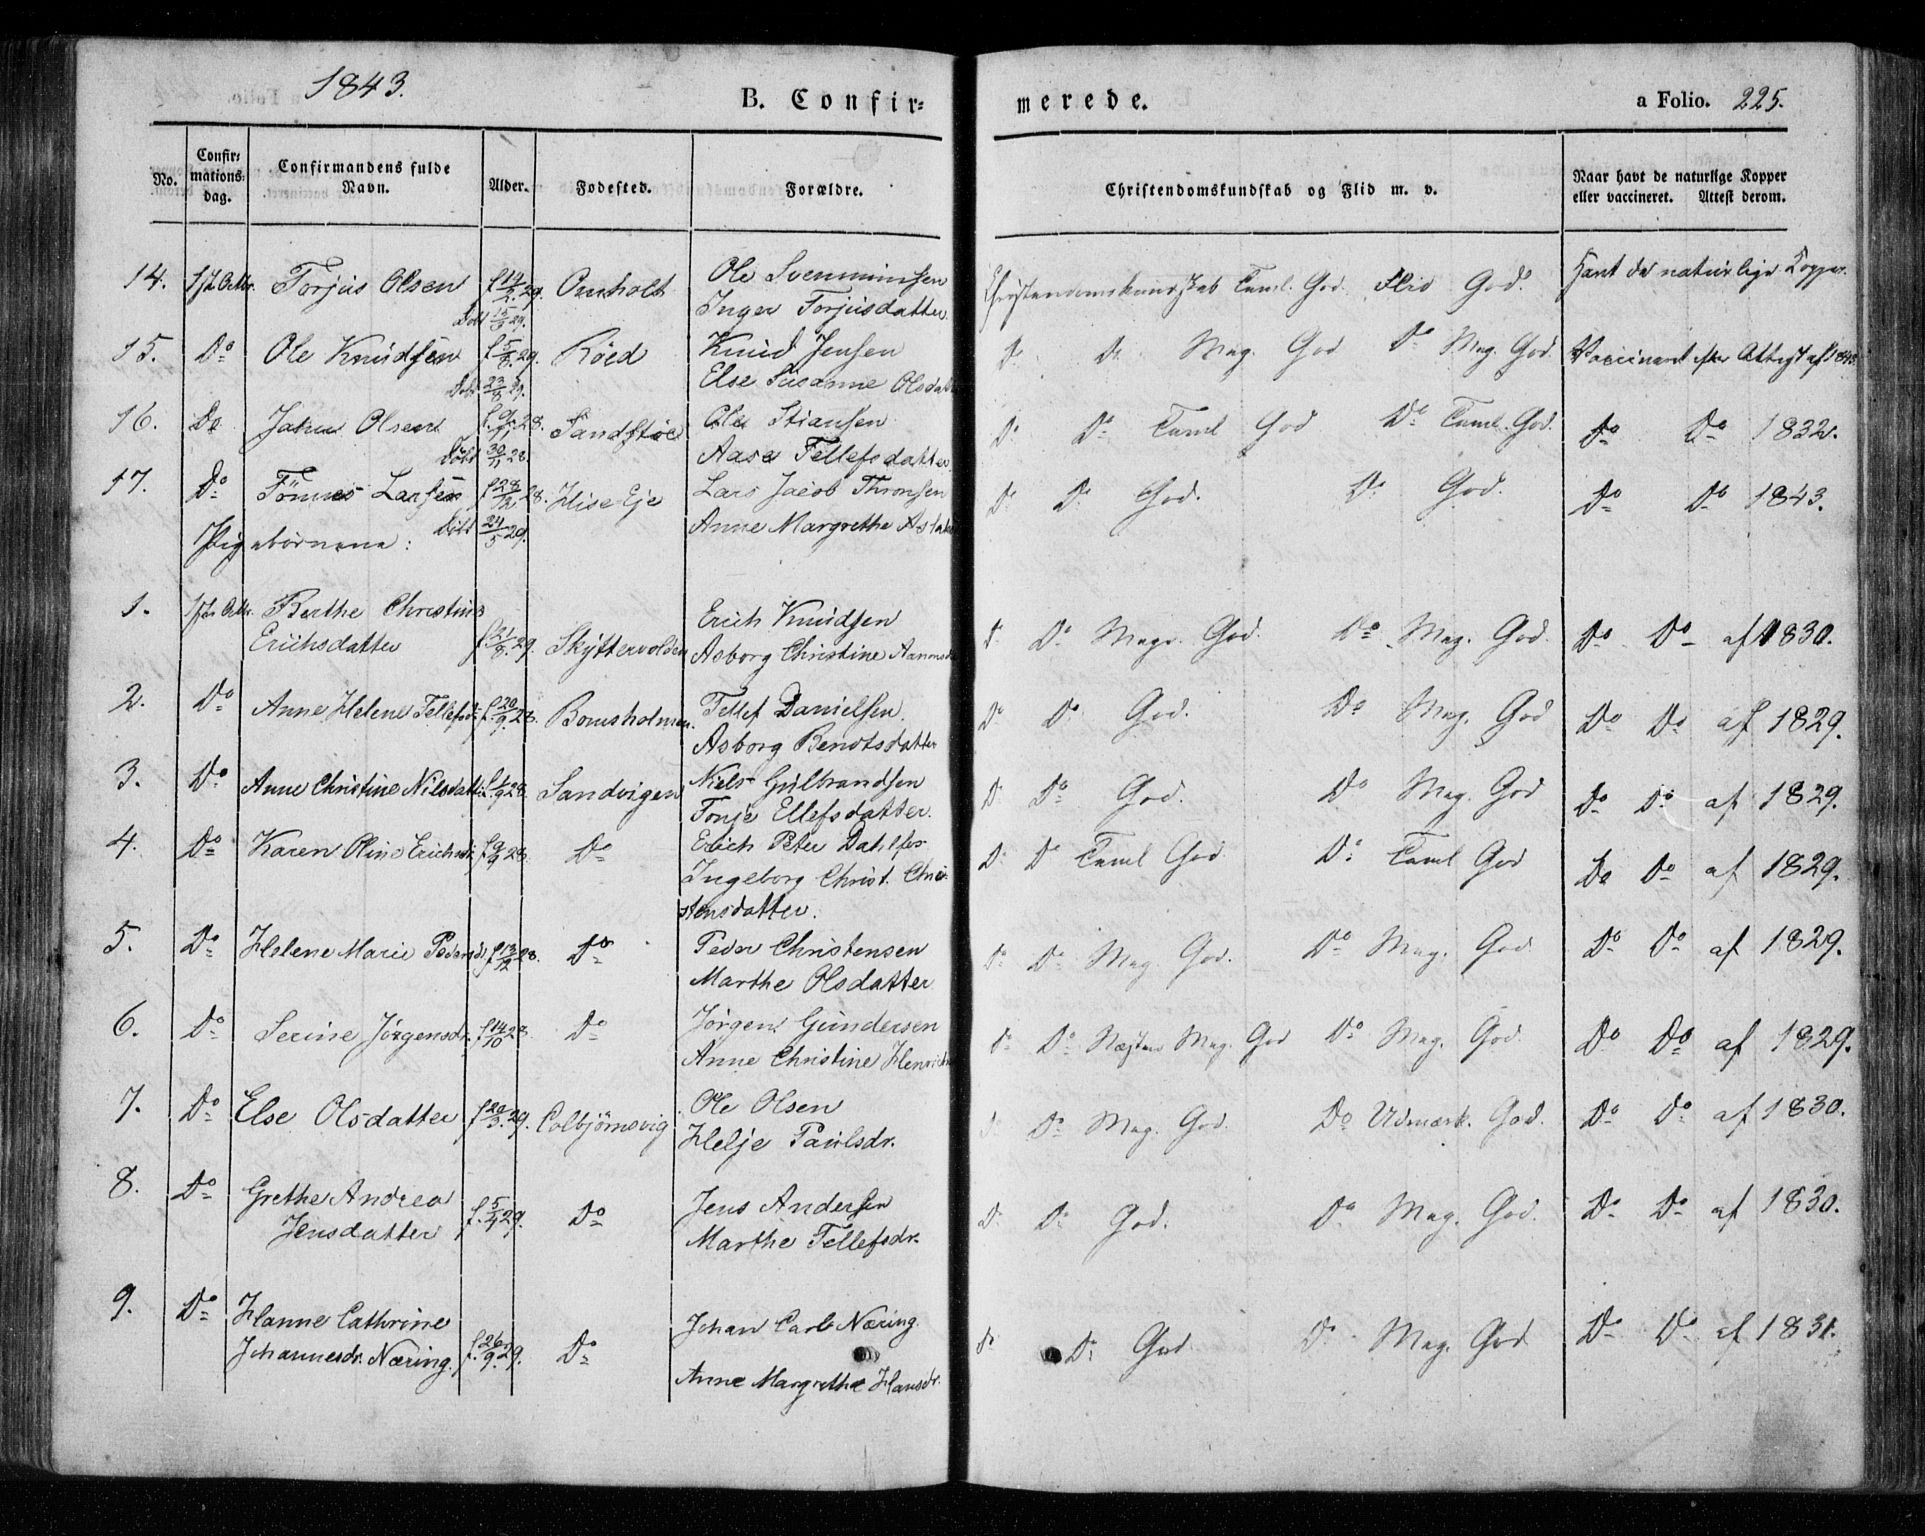 1843.
B. Confir=
merede.
a Folio. 225.
No.
Confir=
mations=
dag.
Confirmandens fulde
Navn.
Alder.
Fødested.
Forældre.
Christendomskundskab og Flid m. v.
Naar havt de naturlige Kopper
eller vaccineret. Attest derom.
14. 1ste Octbr. Torjus Olsen f 14/2 29. Omholt Ole Svenningsen Christendomskundskab Taml. God Flid God. Havt de naturlige Kopper.
Døbt 15/3 29. Inger Torjusdatter
15. Do Ole Knudsen f 5/8 29. Röed Knud Jensen Do Do Meg. God Do Meg. God. Vaccineret efter Attest af 1843
Døbt 23/8 29. Else Susanne Olsdatter
16. Do Olsen 28. Ole Stiansen Do Do Taml God Do Taml. God. Do Do 1832.
Døbt 30/11 28. Aase Tellefsdatter
17. Do Tönnes Larsen f 28/12 28. Hise Eje Lars Jacob Thronsen Do Do God. Do God. Do Do 1843.
Døbt 24/5 29. Anne Margrethe
Pigebørnene:
1. 1ste Octbr. Berthe Christine Erich Knudsen
Erichsdatter f 21/8 29. Skyttervolden Asborg Christine Do Do Meget God. Do Meg. God. Do Do af 1830.
2. Do Anne Helene Tellefsd. f 20/9 28. Bomsholmen. Tellef Danielsen. Do Do God. Do Meg. God Do Do af 1829.
Asborg Bendtsdatter
3. Do Anne Christine Nilsdatter 28. Sandvigen Niels Gulbrandsen Do Do God. Do Meg. God Do Do af 1829.
Tonje Ellefsdatter.
4. Do Karen Oline Erichsd. f 9/9 28. Do Erich Peter Dahlfos Do Do Taml God Do Taml God Do Do af 1829.
Ingeborg Christ. Chri-
stensdatter.
5. Do Helene Marie Pedersd. f 13/12 28. Do Peder Christensen Do Do Meg. God. Do Meg. God Do Do af 1829.
Marthe Olsdatter
6. Do Serine Jörgensdr. f 14/10 28. Do Jörgen Gundersen Do Do Næsten Meg. God Do Meg. God. Do Do af 1829.
Anne Christine
7. Do Else Olsdatter f 20/3 29. Colbjörnsvig Ole Olsen Do Do Meg. God. Do Udmærk. God. Do Do af 1830.
Helje Paulsdr.
8. Do Grethe Andrea Jens Andersen
Jensdatter f. 5/4 29. Do Marthe Tellefsdr. Do Do God. Do Meg. God. Do Do af 1830.
9. Do Hanne Cathrine Johan Carl Næring
Johannesdr. Næring. f. 26/9 29. Do Anne Margrethe Hansdr. Do Do God Do Meg. God Do Do af 1831.